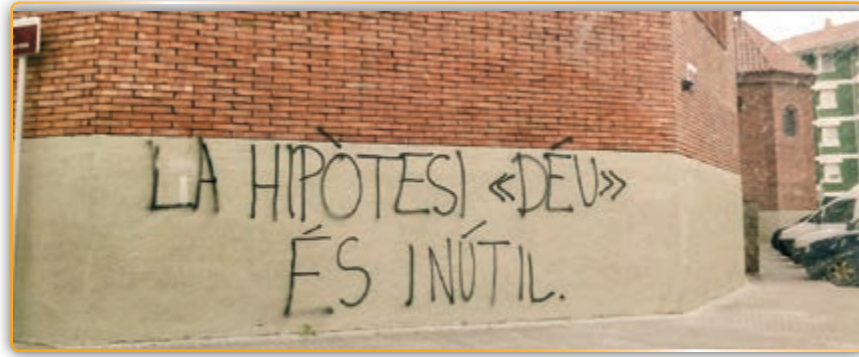 LA HIPÒTESI «DÉU»
ÉS INÚTIL.